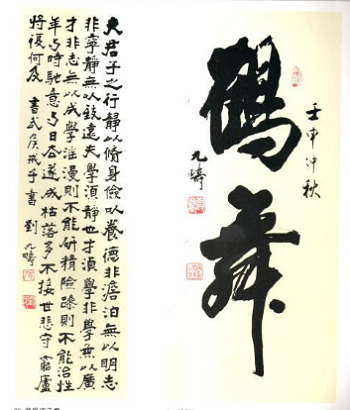 壬申仲秋
鶴舞
九疇
夫君子之行靜以脩身儉以養德非澹泊無以明志
非寧靜無以致遠夫學須靜也才須學非學無以廣
才非志無以成學淫漫則不能研精險躁則不能治性
年与時馳意与日去遂成枯落多不接世悲守窮廬
將復何及 書武侯戒子書 劉九疇